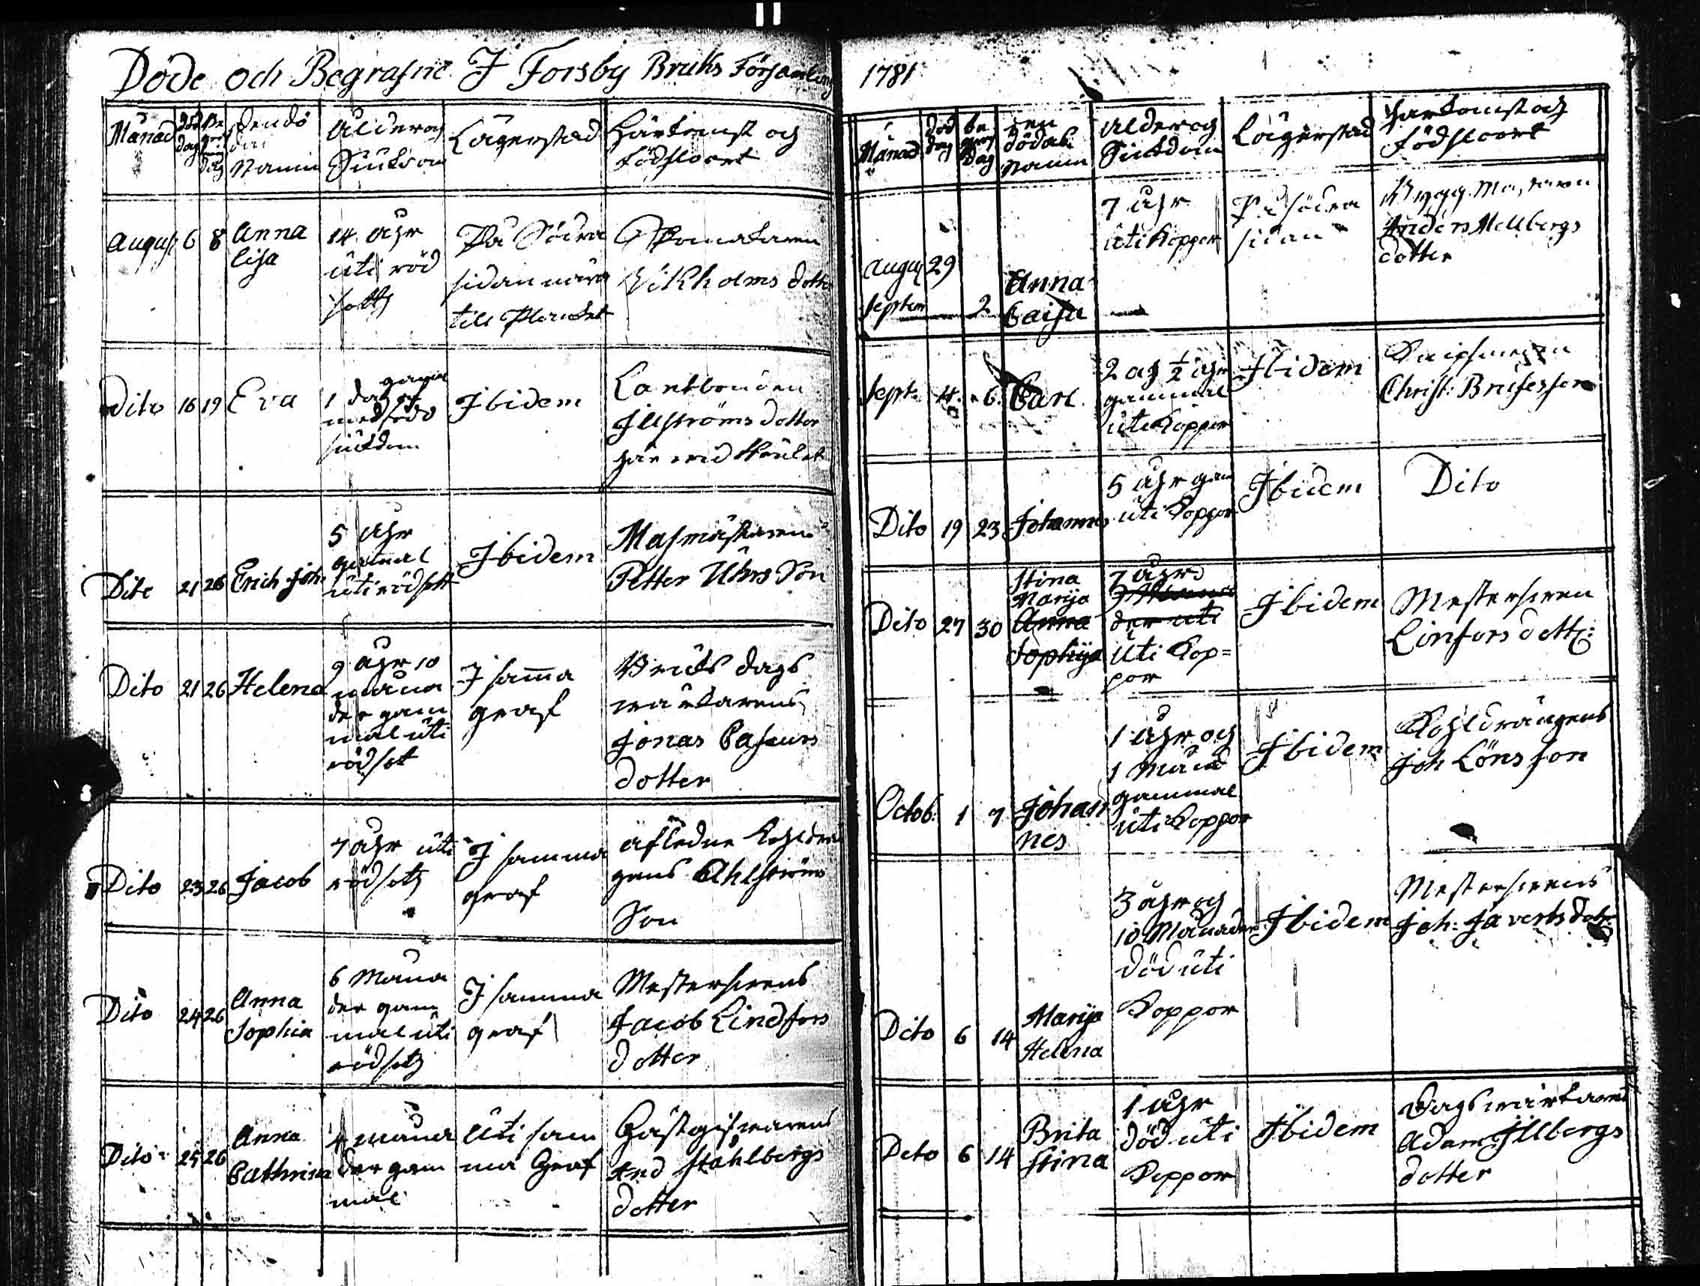 Döde och Begrafne I Forsby Bruks Församling
Månad död dag be graf dag den dö das Namn Ålder och Siukdom Lägerstad Härkomst och födsloort
August 6 8 Anna Lisa 14 åhr uti röd sott
På Södra sidan nära till Planket
Wikholms dotter
Dito 16 19 Eva 1 dag gamal
siukdom
Ibidem
Lantbonden
Jllströms dotter
Dito 21 26 Erich Joh.
5 åhr
gammal
uti rödsott
Ibidem
Masmästarens
Petter Uhrs Son
Dito 21 26 Helena
9 åhr 10
måna
der gam
mal uti
rödsot
I samma
graf
Bruks dags
warkarens
Jonas
dotter
Dito 23 26 Jacob
7 åhr uti
rödsot
I samma
graf
afledne Kohldren
gens Ahlströms
Son
Dito 24 26 Anna
Sophia
6 måna
der gam
mal uti
rödsot
I samma
graf
Mestersvens
Jacob Lindfors
dotter
Dito 25 26 Anna
Cathrina
4 måna
der gam
mal
Uti sam
ma Graf
Gästgifvarens
And Ståhlbergs
dotter
1781
Månad död dag be graf dag den dödas Namn Ålder och Siukdom Lägerstad Härkomst och födsloort
August 29
Septem 2 Anna
Caisa
7 åhr
uti Koppor
På södra
sidan
Anders Hellbergs
dotter
Sept. 4 6 Carl
2 och 1/2 åhr
gammal
uti Koppor
Ibidem
Christ:
Dito 19 23 Johannes
5 åhr gam
uti Koppor
Ibidem
Dito
Dito 27 30 Stina
Marija
Anna
Sophija
7 åhr
der uti
uti Kop=
por
Ibidem
Mestersven
Linfors dott:
Octob. 1 7 Johan
nes
1 åhr och
1 Månad
gammal
uti Koppor
Ibidem
Kohldrängens
Joh Löns son
Dito 6 14 Marija
Helena
3 åhr och
10 Månader
död uti
Koppor
Ibidem
Mestersvens
Joh: Javerts dotr
Dito 6 14 Brita
Stina
1 åhr
död uti
Koppor
Ibidem
Dagswarkarens
Adam Jllbergs
dotter